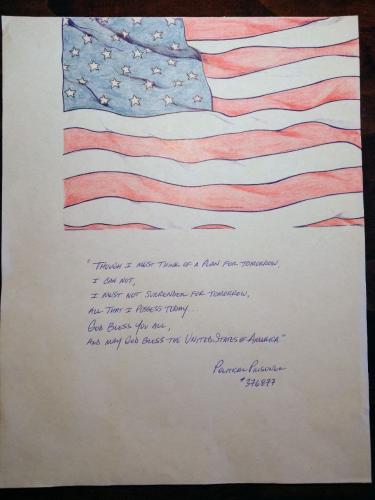 "Though I must think of a plan for tomorrow,
I can not,
I must not surrender for tomorrow,
All that I possess today...
God bless you all,
and may God bless the United States of America"
Political Prisoner
#376877